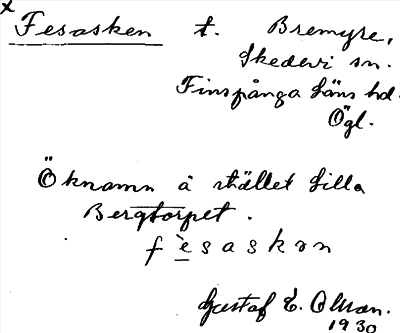 x
Fesasken t. Bremyre,
Skedevi sn.
Finspånga läns hd.
Ögl.
Öknamn å stället Lilla
Bergtorpet.
f è s a s k ə n
Gustaf E. Olsson.
1930